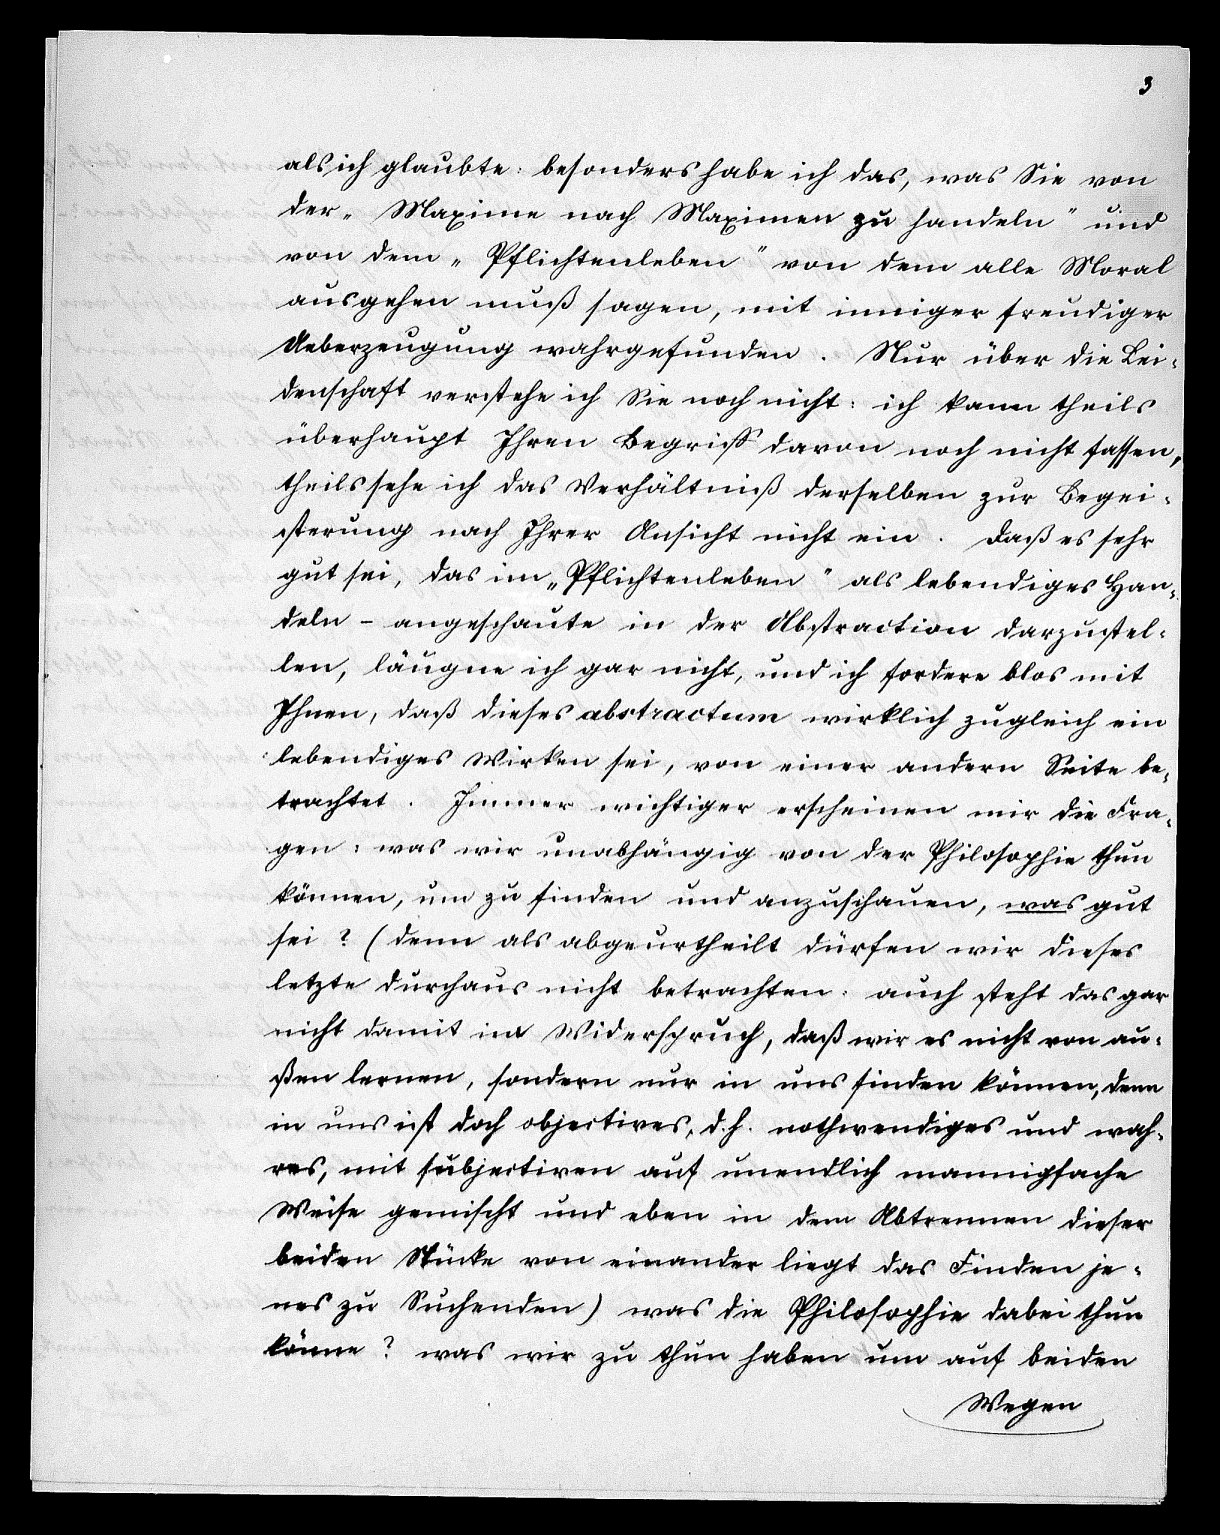 3
als ich glaubte: besonders habe ich das, was Sie von
der „Maxime nach Maximen zu handeln" und
von dem „Pflichtenleben" von dem alle Moral
ausgehen muß sagen, mit inniger freudiger
Ueberzeugung wahrgefunden. Nur über die Lei-
denschaft verstehe ich Sie noch nicht: ich kann theils
überhaupt Ihren Begriff davon noch nicht fassen,
theils sehe ich das Verhältniß derselben zur Begei-
sterung nach Ihrer Ansicht nicht ein. Daß es sehr
gut sei, das im „Pflichtenleben" als lebendiges Han-
deln – angeschaute in der Abstraction darzustel-
len, läugne ich gar nicht, und ich fordere blos mit
Ihnen, daß dieses abstractum wirklich zugleich ein
lebendiges Wirken sei, von einer andern Seite be-
trachtet. Immer wichtiger erscheinen mir die Fra-
gen: was wir unabhängig von der Philosophie thun
können, um zu finden und anzuschauen, was gut
sei? (denn als abgeurtheilt dürfen wir dieses
letzte durchaus nicht betrachten. auch steht das gar
nicht damit im Widerspruch, daß wir es nicht von au-
ßen lernen, sondern nur in uns finden können, denn
in uns ist doch objectives, d.h. nothwendiges und wah-
res, mit subjectiven auf unendlich mannigfache
Weise gemischt und eben in dem Abtrennen dieser
beiden Stücke von einander liegt das Finden je-
nes zu Suchenden) was die Philosophie dabei thun
könne? was wir zu thun haben um auf beiden
Wegen